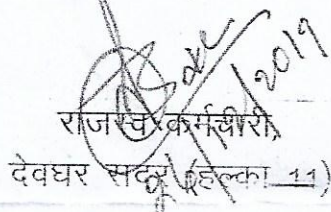 2019
राजस्व कर्मचारी,
देवघर सदर (हल्का 11)